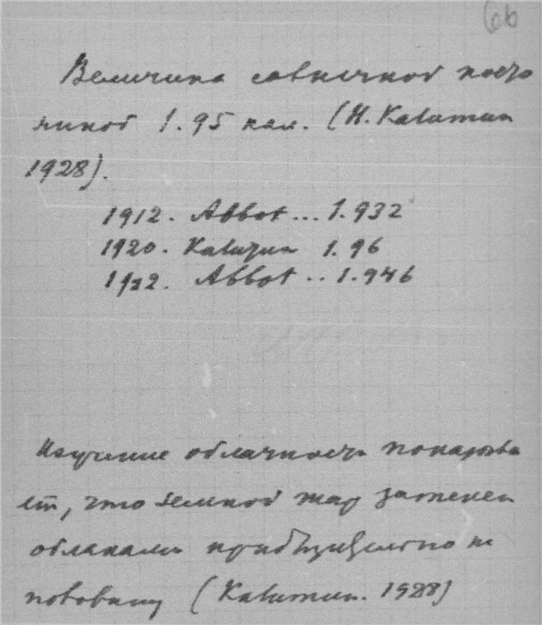 66
Величина солнечной посто
янной 1.95 кал. (Н. Калитин
1928).
1912. Abbot... 1.932
1920. Калитин 1.96
1922. Abbot.. 1.946
Изучение облачности показыва
ет, что земной шар затенен
облаками приблизительно на
половину (Калитин. 1928)